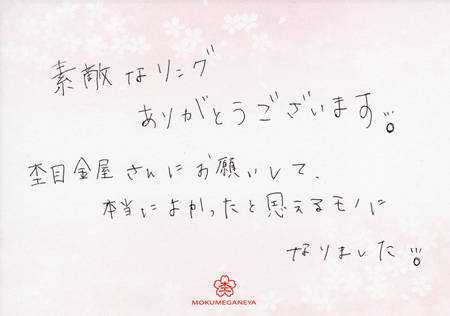 素敵なリング
ありがとうございます!!
杢目金屋さんにお願いして、
本当によかったと思えるモノに
なりました!!
MOKUMEGANEYA